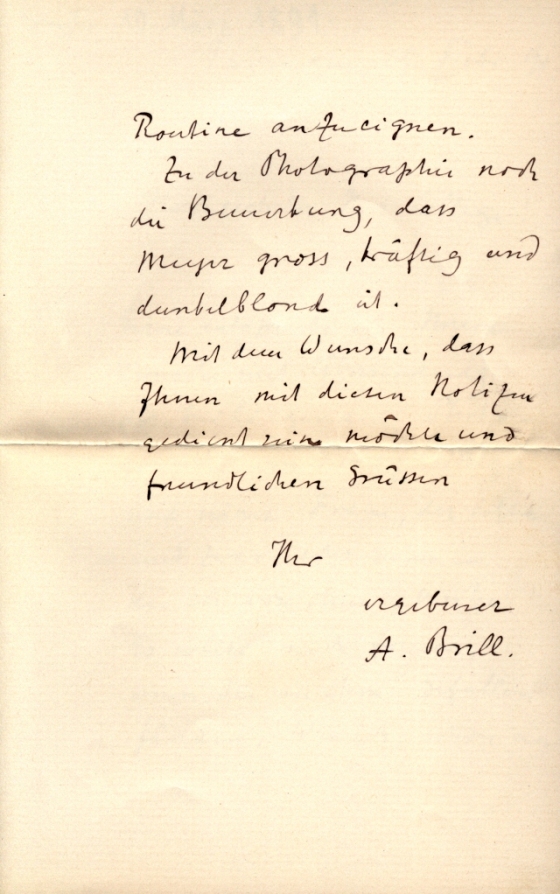 Routine anzueignen.
Zu der Photographie noch
die Bemerkung, dass
Meyer gross, kräftig und
dunkelblond ist.
Mit dem Wunsche, dass
Ihnen mit diesen Notizen
gedient sein möchte und
freundlichen Grüssen
Ihr
ergebener
A. Brill.